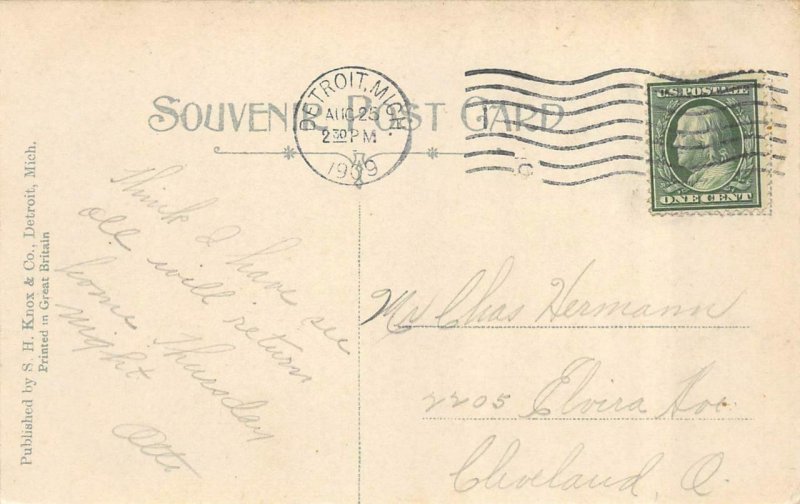 SOUVENIR POST CARD
DETROIT, MICH.
AUG 25
2 30 PM
1909
U.S. POSTAGE
ONE CENT
Published by S. H. Knox & Co., Detroit, Mich.
Printed in Great Britain
Think I have see
all will return
home Thursday
night
Otto
Mr Chas Hermann
2205 Elvira Ave
Cleveland O.